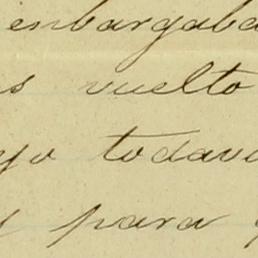 enbargaba
s vuelto
yo todav
y para